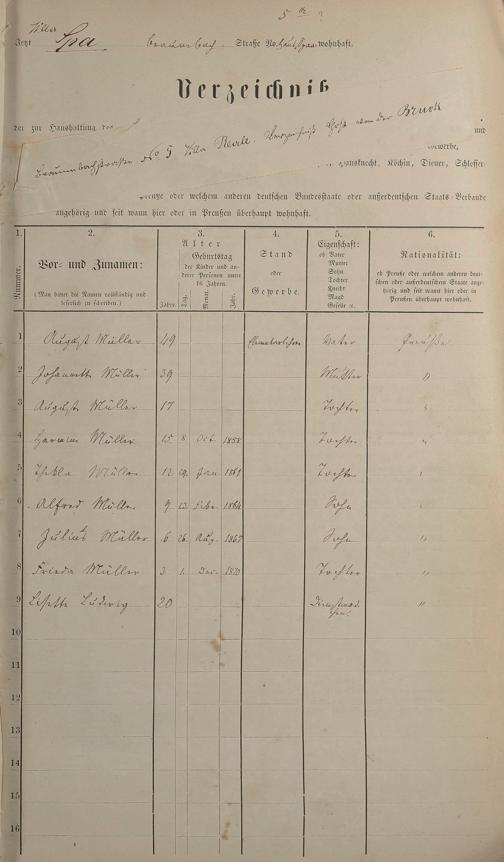 5
Villa
Jetzt Spa Straße No. wohnhaft.
Verzeichniß
der zur Haushaltung des
No 5 Villa von der und
Gewerbe,
Hausknecht, Köchin, Diener, Schlosser-
Preuße oder welchem anderen deutschen Bundesstaate oder außerdeutschen Staats-Verbande
angehörig und seit wann hier oder in Preußen überhaupt wohnhaft.
1. 2. 3. 4. 5. 6.
Nummer.
Vor- und Zunamen:
(Man bittet die Namen vollständig und
leserlich zu schreiben.)
Alter
Geburtstag
der Kinder und an-
derer Personen unter
16 Jahren.
Jahre. Tag. Monat. Jahr.
Stand
oder
Gewerbe.
Eigenschaft:
ob Vater
Mutter
Sohn
Tochter
Knecht
Magd
Geselle ꝛc.
Nationalität:
ob Preuße oder welchem anderen deut-
schen oder außerdeutschen Staate ange-
hörig und seit wann hier oder in
Preußen überhaupt wohnhaft.
1 August Müller 49 Vater Preuße
2 Müller 39 Mutter "
3 Müller 17 Tochter "
4 Müller 15 8 Oct. 1858 Tochter "
5 Thekla Müller 12 29. Jan. 1861 Tochter "
6 Alfred Müller 9 23. Febr. 1864 Sohn "
7 Julius Müller 6 26. Aug. 1867 Sohn "
8 Frieda Müller 3 1. Dec. 1870 Tochter "
9 Lisette Ludwig 20 "
10
11
12
13
14
15
16